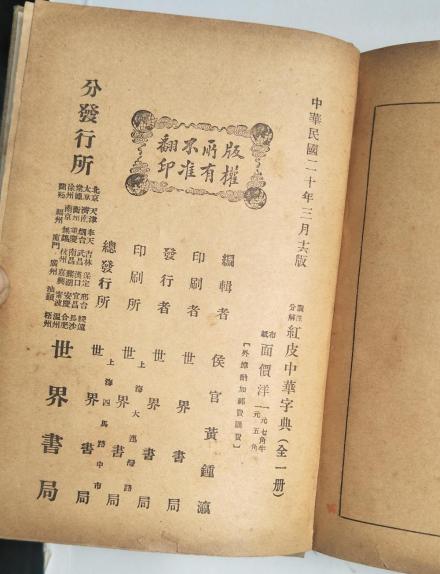 中華民國二十年三月六版
分解
紅皮中華字典(全一册)
布
紙
面價洋
一元七角半
一元五角
【外埠酌加郵費匯費】
版權
所有
不准
翻印
編輯者 侯官黃鍾瀛
印刷者 世界書局
發行者 世界書局
印刷所 世界書局
上海大連灣路
總發行所 世界書局
上海四馬路中市
分發行所
北京 天津 奉天 吉林
太原 濟南 烟台 保定 邢台
武昌 漢口 宜昌 長沙
衡州 重慶 南昌 蕪湖 安慶 合肥
徐州 南京 無錫 杭州 嘉興 寧波 溫州
福州 廈門 廣州 汕頭 梧州
世界書局